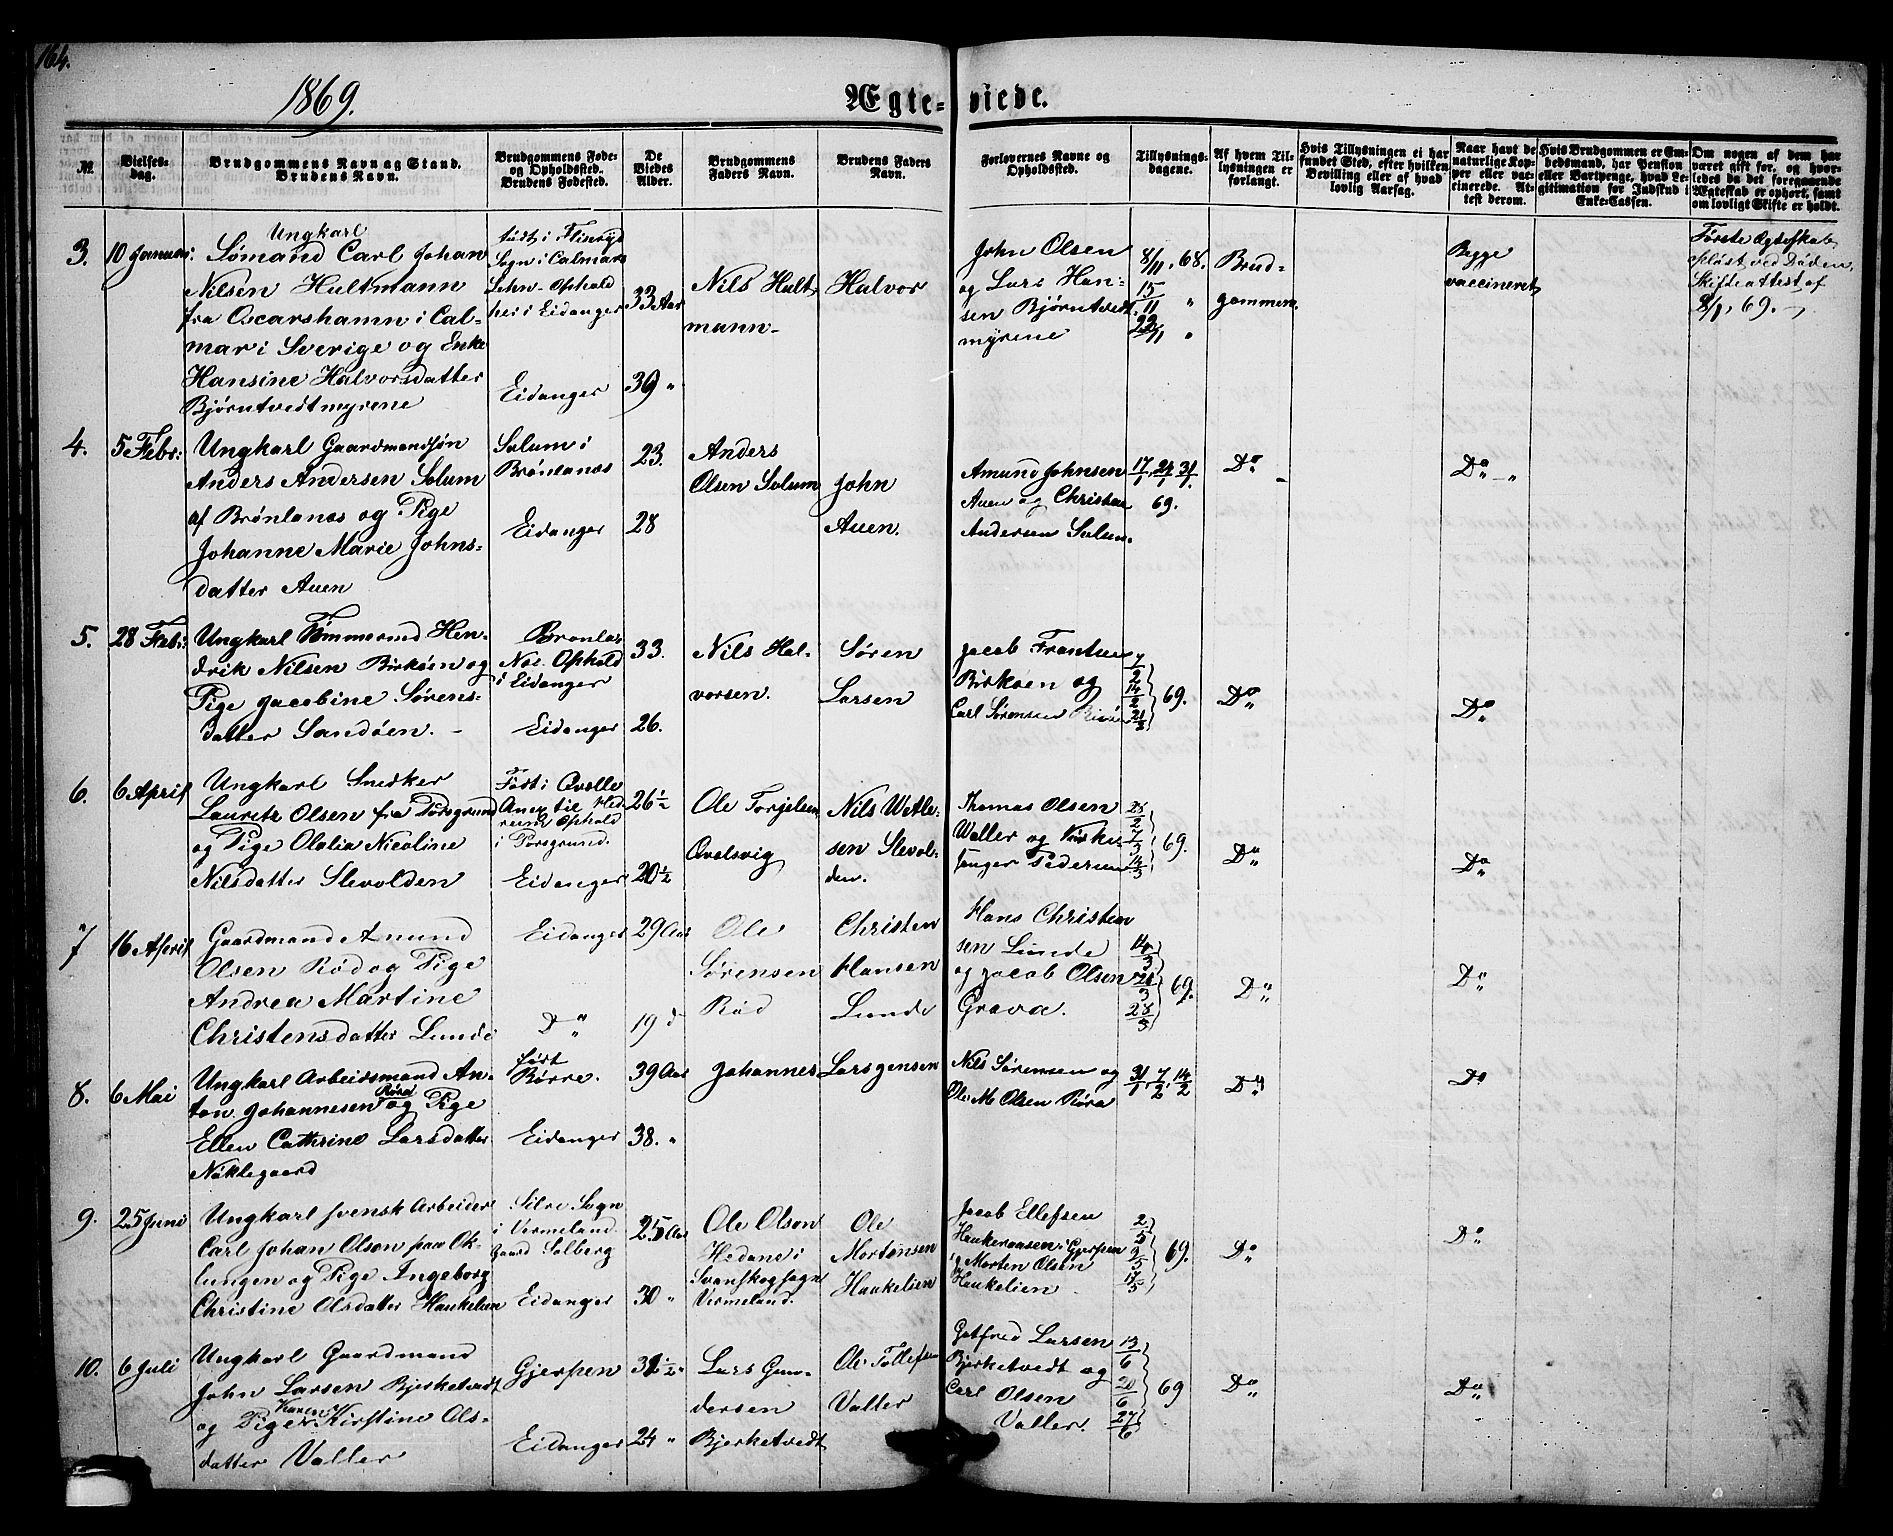 164.
1869.
Ægteviede.
№
Vielses-
dag.
Brudgommens Navn og Stand.
Brudens Navn.
Brudgommens Føde-
og Opholdssted.
Brudens Fødested.
De
Viedes
Alder.
Brudgommens
Faders Navn.
Brudens Faders
Navn.
Forlovernes Navne og
Opholdssted.
Tillysnings-
dagene.
Af hvem Til-
lysningen er
forlangt.
Hvis Tillysningen ei har
fundet Sted, efter hvilken
Bevilling eller af hvad
lovlig Aarsag.
Naar havt de
naturlige Kop-
per eller vac-
cinerede. At-
test derom.
Hvis Brudgommen er Em-
bedsmand, har Pension
eller Vartpenge, hvad Le-
gitimation for Indskud i
Enke-Cassen.
Om nogen af dem har
været gift før, og hvor-
ledes da det foregaaende
Ægteskab er ophørt, samt
om lovligt Skifte er holdt.
3.
10 Januar:
Ungkarl
Sømand Carl Johan
Nilsen Hultmann
fra Oscarshamn i Cal-
mar i Sverige og Enke
Hansine Halvorsdatter
Bjørntvedtmyrene
født i Fliseryd
Sogn i Calmars
Lehn - Ophold
her i Eidanger
Eidanger
33 Aar
39 "
Nils Hult
mann -
Halvor
John Olsen
og Lars Han-
sen Bjørntvedt
myrene
8/11, 68.
15/11 "
22/11 "
Brud-
gommen.
Begge
vaccineret
Første Ægteskab
opløst ved Døden,
Skifteattest af
69.
4.
5 Febr:
Ungkarl Gaardmandsøn
Anders Andersen Solum
af Brønlanæs og Pige
Johanne Marie Johns-
datter Auen
Solum i
Brønlanæs
Eidanger
23.
28
Anders
Olsen Solum
John
Auen.
Amund Johnsen
Auen og Christian
Andersen Solum.
17/1, 24/1 31/1.
69.
Do
Do "
5.
28 Feb:
Ungkarl Tømmermd Hen-
drik Nilsen Birkøen og
Pige Jacobine Sørens-
datter Sandøen.
Bronla-
Næs. Ophold
i Eidanger
Eidanger
33.
26.
Nils Hal-
vorsen.
Søren
Larsen
Jacob Frantsen
Birkøen og
Carl Sørensen
7/2
14/2
21/2
69.
Do
Do
6.
6 April
Ungkarl Snedker
Lauritz Olsen fra Porsgrund
og Pige Olelia Nicoline
Nilsdatter Slevolden
Født i
Ophold
i Porsgrund.
Eidanger
26 1/2
20 1/2
Ole Torjelsen
Qvalsvig
Nils Wetle-
sen Slevol-
den.
Thomas Olsen
Waller og Kirke-
sanger Pedersen
28/2
7/3
14/3
69.
Do
Do
7
16 April
Gaardmand Amund
Olsen Rød og Pige
Andrea Martine
Christensdatter Lunde
Eidanger
Do
29 Aar
19 d
Ole
Sørensen
Rød
Christen
Hansen
Lunde
Hans Christen
sen Lunde
og Jacob Olsen
Grava.
14/3
21/3
28/3
69.
Do
Do
8.
6 Mai
Ungkarl Arbeidsmand An-
ton Johannesen Røra og Pige
Ellen Cathrine Larsdatter
Nøklegaard
født
Børre.
Eidanger
39 Aar
38. "
Johannes
Lars Jensen
Nils Sørensen og
Ole M Olsen Røra
31/1, 7/2, 14/2
Do
Do
9.
25 Juni
Ungkarl svensk Arbeider
Carl Johan Olson paa Ok-
lungen og Pige Ingeborg
Christine Olsdatter Haukelien
Silre Sogn
i Vermeland
Gaard Solberg
Eidanger
25 Aar
30 "
Ole Olson
Hedane i
Svanskog sogn
Vermeland.
Ole
Mortensen
Haukelien
Jacob Ellefsen
Haukeraasen i Gjerpen
og Morten Olsen
Haukelien
2/5
9/5
17/5
69.
Do
Do
10.
6 Juli
Ungkarl Gaardmand
John Larsen Bjerketvedt
og Pige Karen Kirstine Ols-
datter Valler
Gjerpen
Eidanger
31 1/2
24 "
Lars Gun-
dersen
Bjerketvedt
Ole Tollefsen
Valler
Gotfred Larsen
Bjerketvedt og
Carl Olsen
Valler.
13/6
20/6
27/6
69
Do
Do